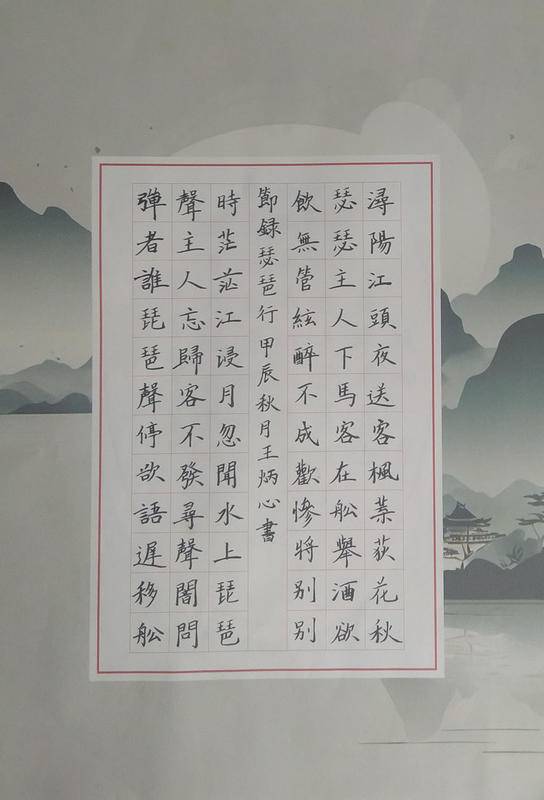 潯陽江頭夜送客楓葉荻花秋
瑟瑟主人下馬客在舩舉酒欲
飲無管絃醉不成歡慘將别别
節録瑟琶行 甲辰秋月王炳心書
時茫茫江浸月忽聞水上琵琶
聲主人忘歸客不發尋聲闇問
彈者誰琵琶聲停欲語遲移舩